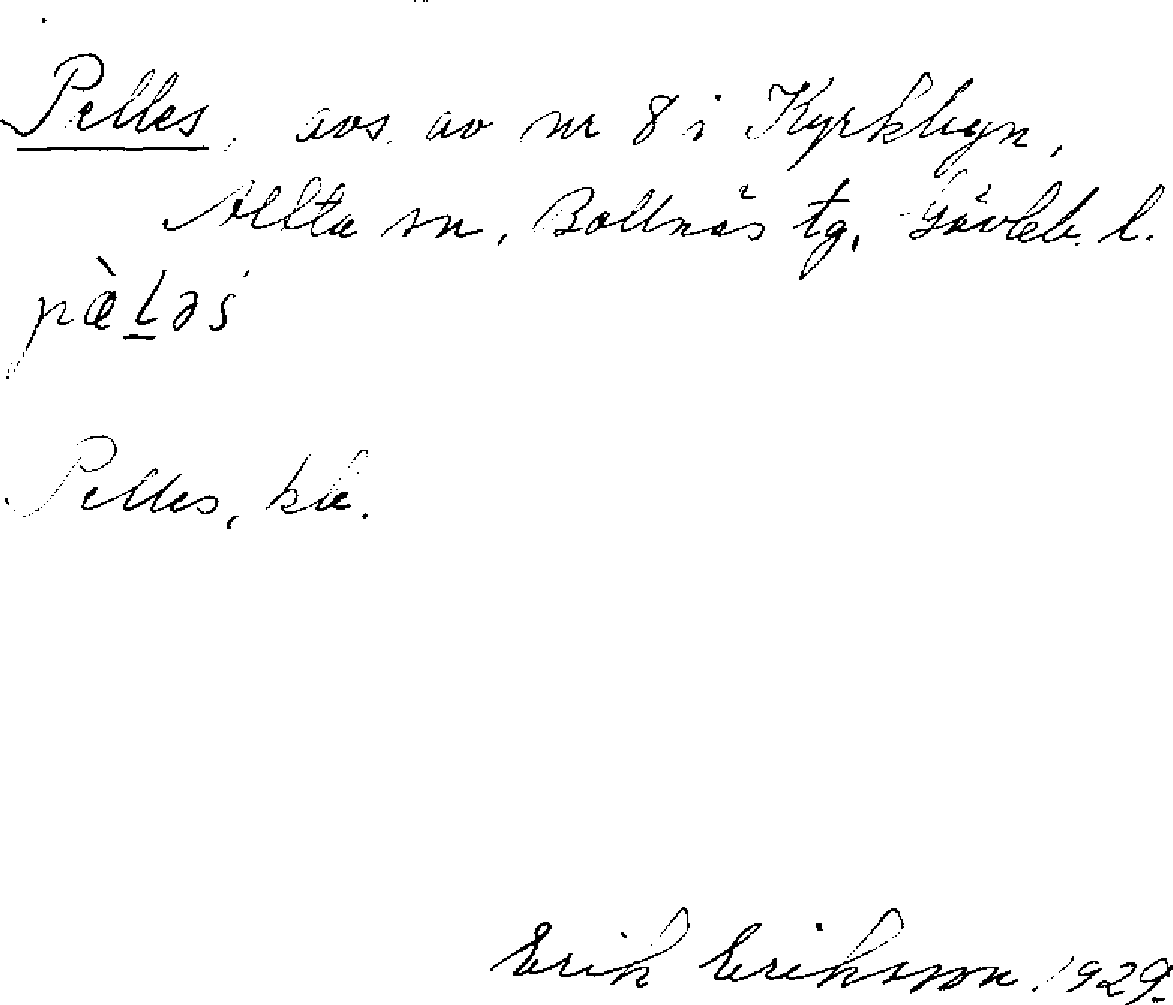 Pelles, avs. av nr 8 i Kyrkbyn,
Alfta sn, Bollnäs tg, Gävleb. l.
pæ̀l̲əs
Pelles, kk.
Erik Eriksson 1929.